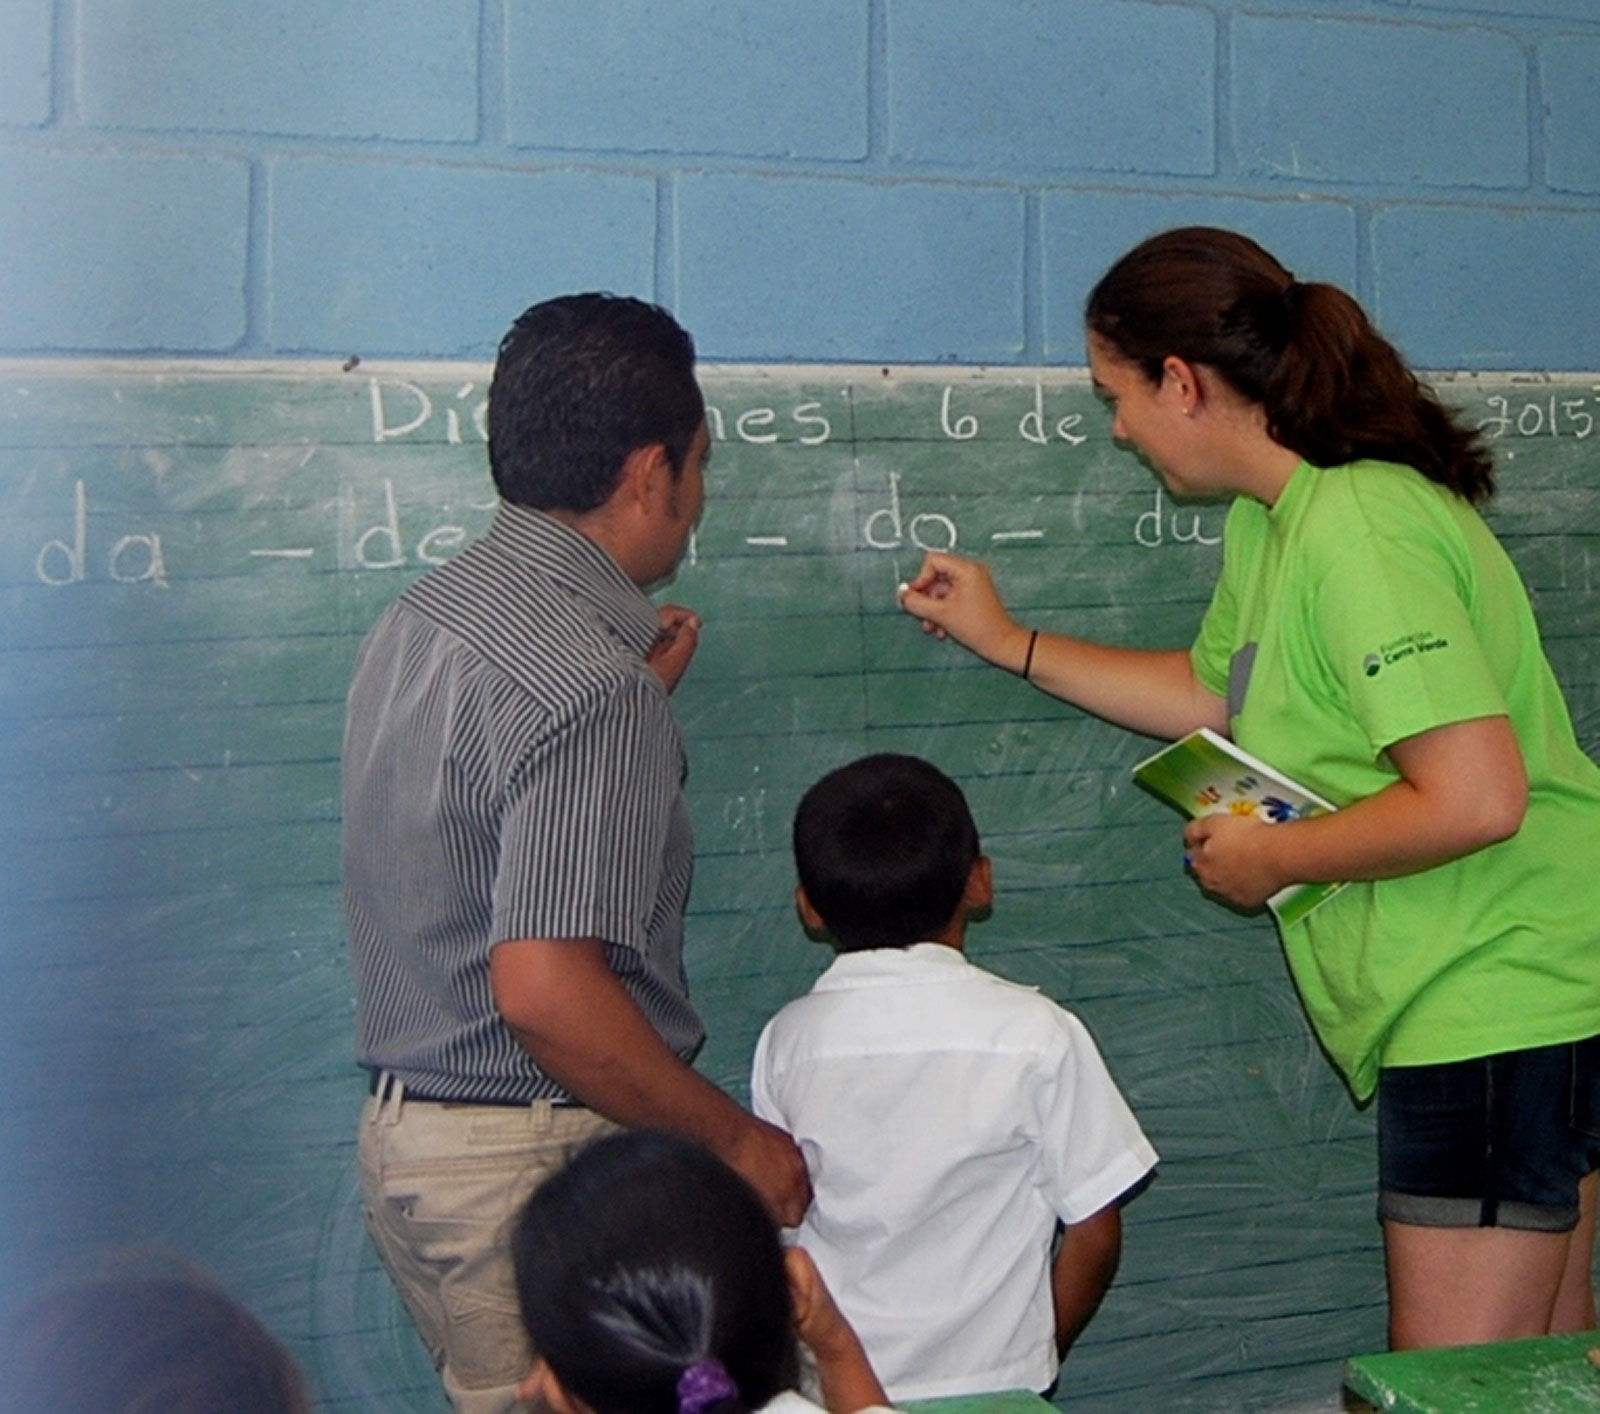 6 de 2015
da - de - do - du
Fundación
Cerro Verde